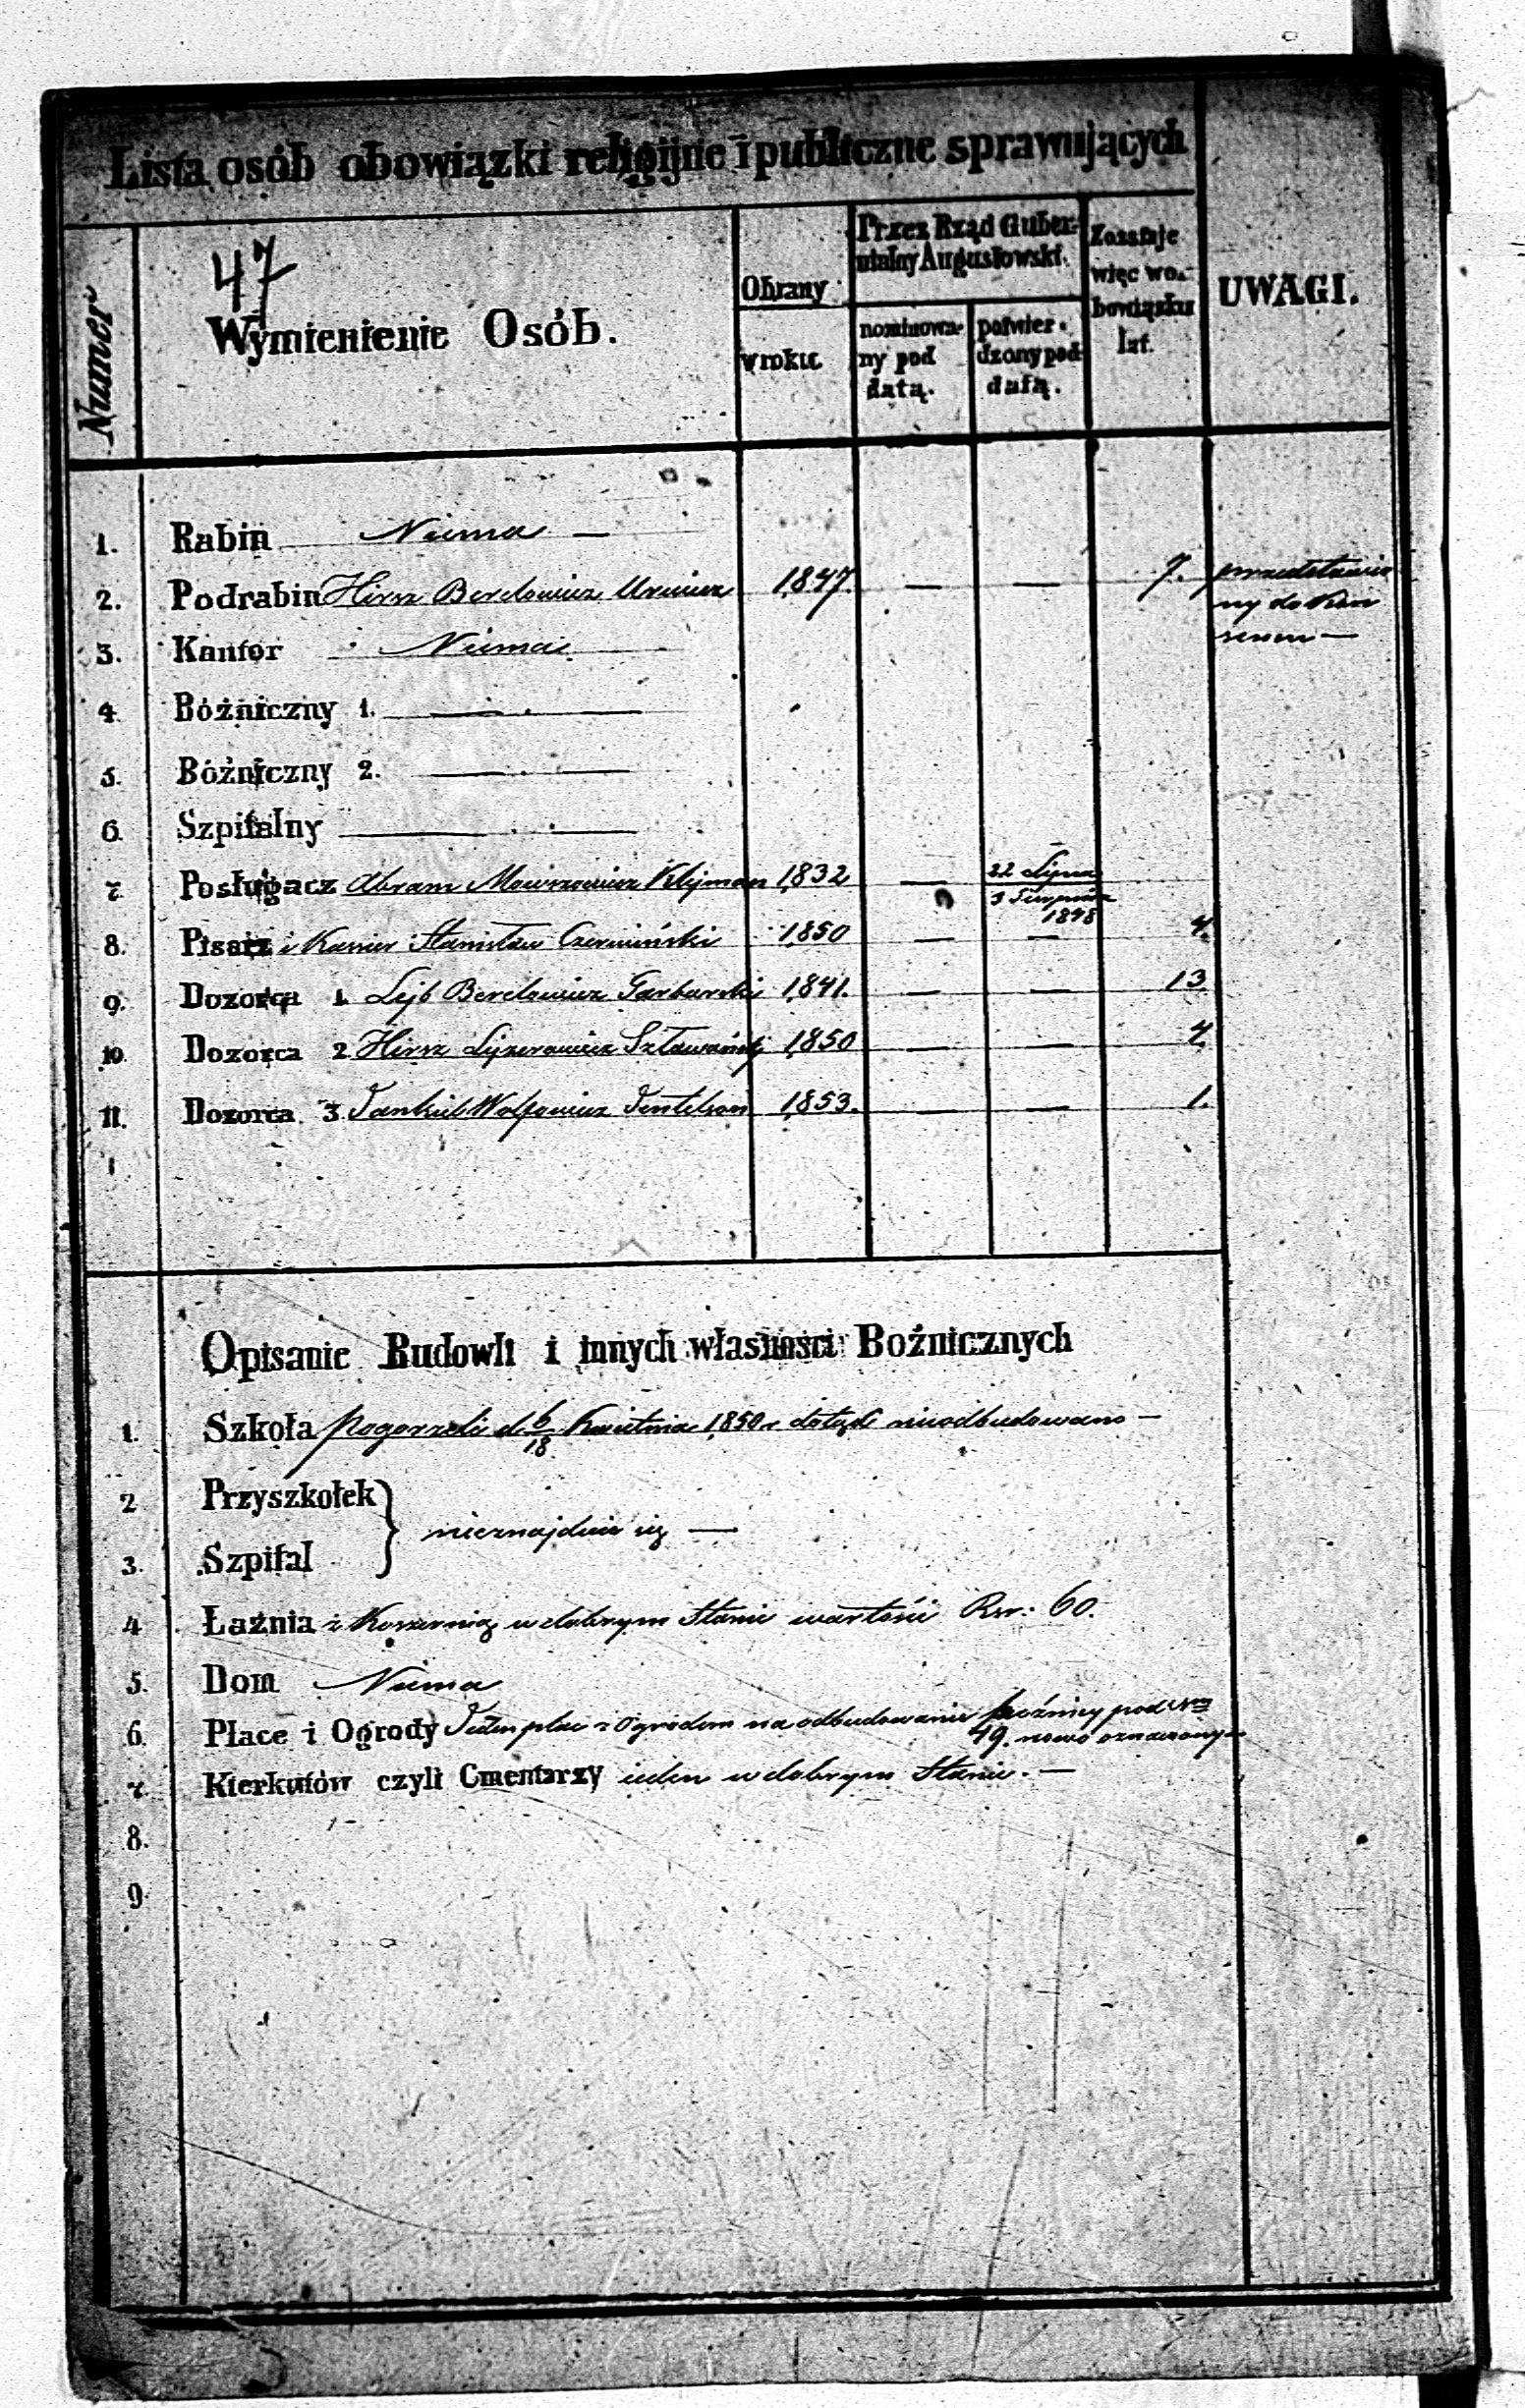 Lista osób obowiązki religijne i publiczne sprawujących
47
Numer
Wymienienie Osób.
Obrany
w roku
Przez Rząd Guber-
nialny Augustowski.
nominowa-
ny pod
datą.
potwier-
dzony pod
datą.
Zostaje
więc w o-
bowiązku
lat.
UWAGI.
1. Rabin Niema —
2. Podrabin Hirsz Berelowicz 1847. — — 7. przedstawio
ny do kon
sensu —
3. Kantor Niema
4. Bóżniczny 1. —
5. Bóżniczny 2. —
6. Szpitalny —
7. Posługacz Abram Mowszowicz Klejman 1832 — 22 Lipca
3 Sierpnia
1848
8. Pisarz i Kassier Stanisław Czerwiński 1850 — — 4.
9. Dozorca 1. Lejb Berelowicz Garbarski 1841. — — 13
10. Dozorca 2 Hirsz Lejzerowicz 1850 — — 4
11. Dozorca 3 Jankiel Wolfowicz 1853. — — 1.
Opisanie Budowli i innych własności Bożnicznych
1. Szkoła pogorzeli d. 6/18 Kwietnia 1850 r dotąd nieodbudowano —
2 Przyszkołek
3. Szpital } nieznajduie się —
4 Łaźnia z Koszernią w dobrym Stanie wartości Rsr: 60.
5. Dom Niema
6. Place i Ogrody Jeden plac z Ogrodem na odbudowanie bożnicy pod Nro
49. nowo oznaczony
7. Kierkutów czyli Cmentarzy ieden w dobrym Stanie. —
8.
9